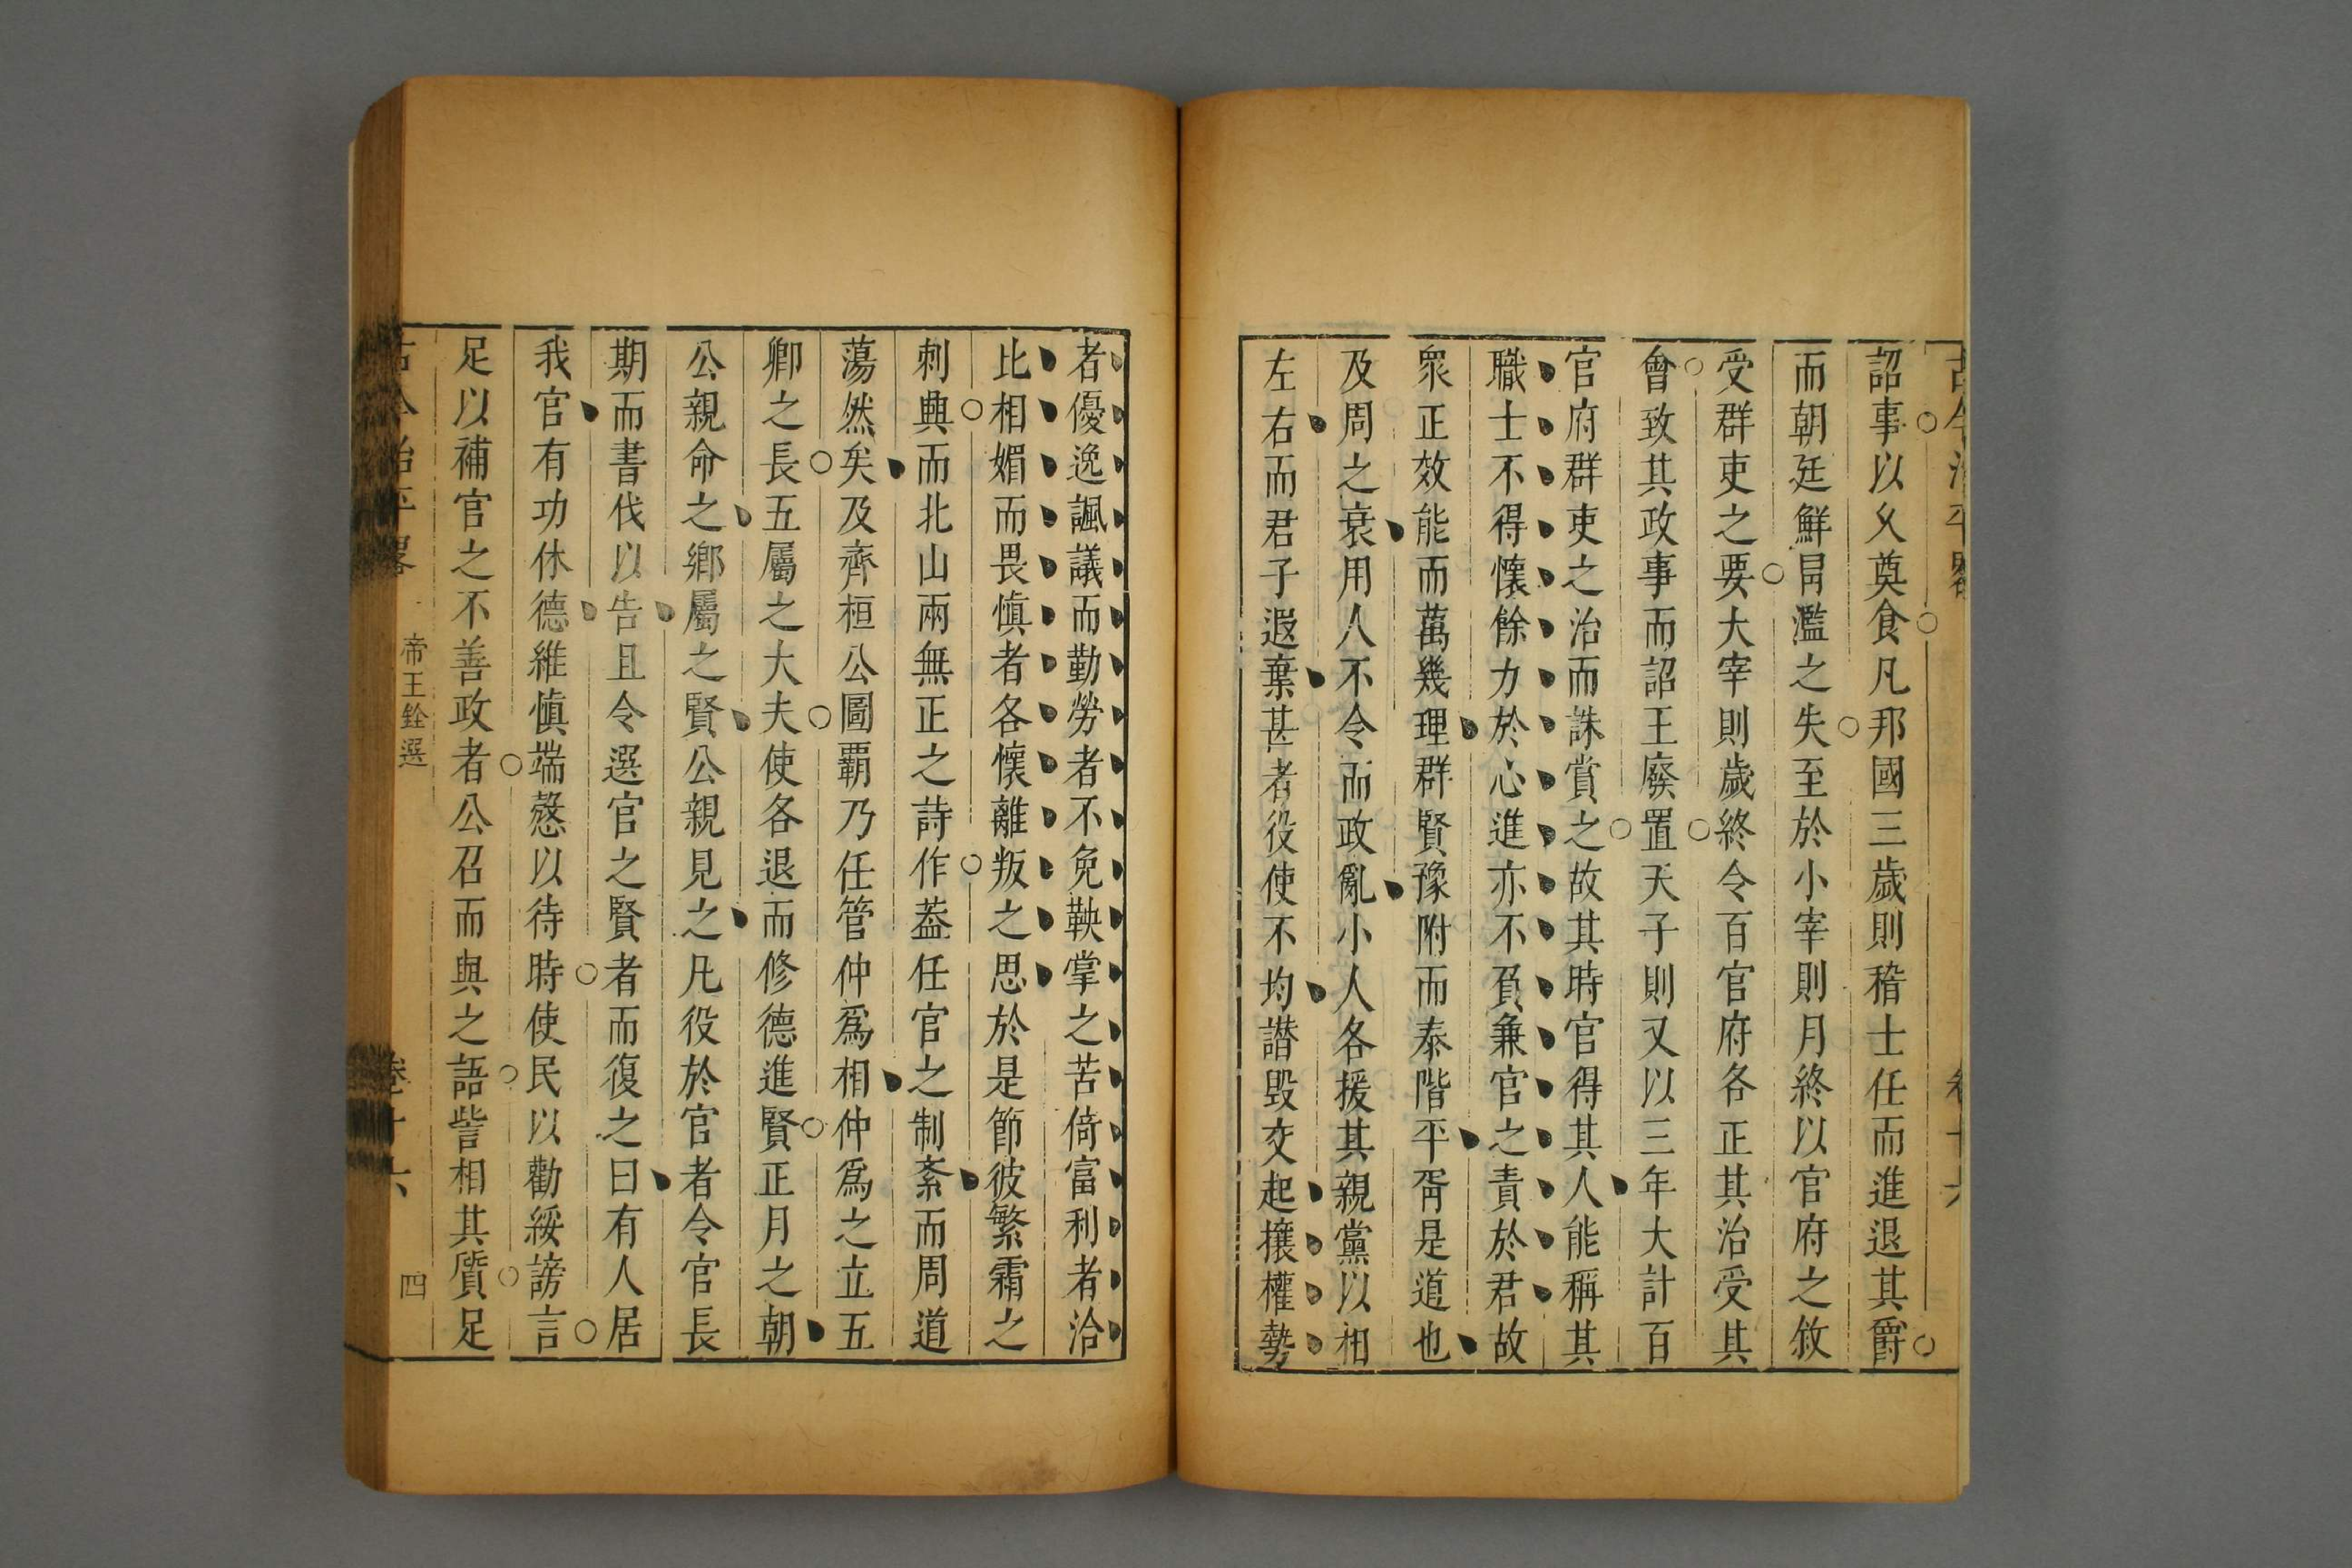 古今治平畧 卷十六
詔事以久奠食凡邦國三歲則稽士任而進退其爵
而朝廷鮮冒濫之失至於小宰則月終以官府之敘
受群吏之要大宰則歲終令百官府各正其治受其
會致其政事而詔王廢置天子則又以三年大計百
官府群吏之治而誅賞之故其時官得其人能稱其
職士不得懷餘力於心進亦不負兼官之責於君故
衆正效能而萬幾理群賢豫附而泰階平胥是道也
及周之衰用人不令而政亂小人各援其親黨以相
左右而君子遐棄甚者役使不均譖毀交起攘權勢
者優逸諷議而勤勞者不免鞅掌之苦倚富利者洽
比相媚而畏慎者各懷離叛之思於是節彼繁霜之
刺興而北山兩無正之詩作蓋任官之制紊而周道
蕩然矣及齊桓公圖覇乃任管仲爲相仲爲之立五
卿之長五屬之大夫使各退而修德進賢正月之朝
公親命之鄉屬之賢公親見之凡役於官者令官長
期而書伐以告且令選官之賢者而復之曰有人居
我官有功休德維慎端慤以待時使民以勸綏謗言
足以補官之不善政者公召而與之語訾相其質足
古今治平畧 帝王銓選 卷十六 四